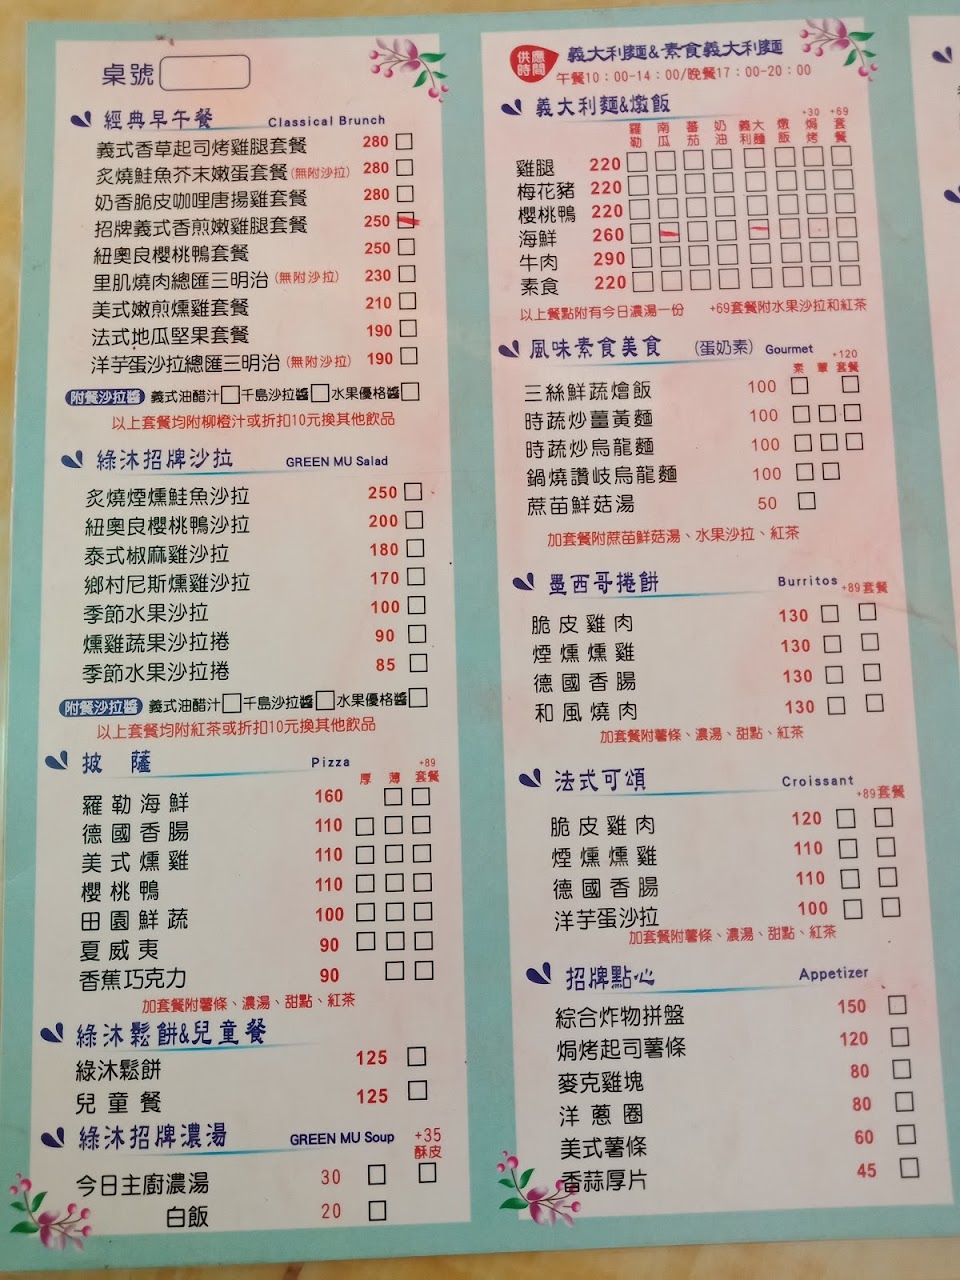 桌號
經典早午餐 Classical Brunch
義式香草起司烤雞腿套餐 280
炙燒鮭魚芥末嫩蛋套餐(無附沙拉) 280
奶香脆皮咖哩唐揚雞套餐 280
招牌義式香煎嫩雞腿套餐 250
紐奧良櫻桃鴨套餐 250
里肌燒肉總匯三明治(無附沙拉) 230
美式嫩煎燻雞套餐 210
法式地瓜堅果套餐 190
洋芋蛋沙拉總匯三明治(無附沙拉) 190
附餐沙拉醬 義式油醋汁 千島沙拉醬 水果優格醬
以上套餐均附柳橙汁或折扣10元換其他飲品
綠沐招牌沙拉 GREEN MU Salad
炙燒煙燻鮭魚沙拉 250
紐奧良櫻桃鴨沙拉 200
泰式椒麻雞沙拉 180
鄉村尼斯燻雞沙拉 170
季節水果沙拉 100
燻雞蔬果沙拉捲 90
季節水果沙拉捲 85
附餐沙拉醬 義式油醋汁 千島沙拉醬 水果優格醬
以上套餐均附紅茶或折扣10元換其他飲品
披薩 Pizza 厚 薄 +89套餐
羅勒海鮮 160
德國香腸 110
美式燻雞 110
櫻桃鴨 110
田園鮮蔬 100
夏威夷 90
香蕉巧克力 90
加套餐附薯條、濃湯、甜點、紅茶
綠沐鬆餅&兒童餐
綠沐鬆餅 125
兒童餐 125
綠沐招牌濃湯 GREEN MU Soup +35酥皮
今日主廚濃湯 30
白飯 20
供應時間 義大利麵&素食義大利麵
午餐10：00-14：00/晚餐17：00-20：00
義大利麵&燉飯
羅勒 南瓜 蕃茄 奶油 義大利麵 燉飯 +30焗烤 +69套餐
雞腿 220
梅花豬 220
櫻桃鴨 220
海鮮 260
牛肉 290
素食 220
以上餐點附有今日濃湯一份 +69套餐附水果沙拉和紅茶
風味素食美食 (蛋奶素) Gourmet 素 葷 +120套餐
三絲鮮蔬燴飯 100
時蔬炒薑黃麵 100
時蔬炒烏龍麵 100
鍋燒讚岐烏龍麵 100
蔗苗鮮菇湯 50
加套餐附蔗苗鮮菇湯、水果沙拉、紅茶
墨西哥捲餅 Burritos +89套餐
脆皮雞肉 130
煙燻燻雞 130
德國香腸 130
和風燒肉 130
加套餐附薯條、濃湯、甜點、紅茶
法式可頌 Croissant +89套餐
脆皮雞肉 120
煙燻燻雞 110
德國香腸 110
洋芋蛋沙拉 100
加套餐附薯條、濃湯、甜點、紅茶
招牌點心 Appetizer
綜合炸物拼盤 150
焗烤起司薯條 120
麥克雞塊 80
洋蔥圈 80
美式薯條 60
香蒜厚片 45